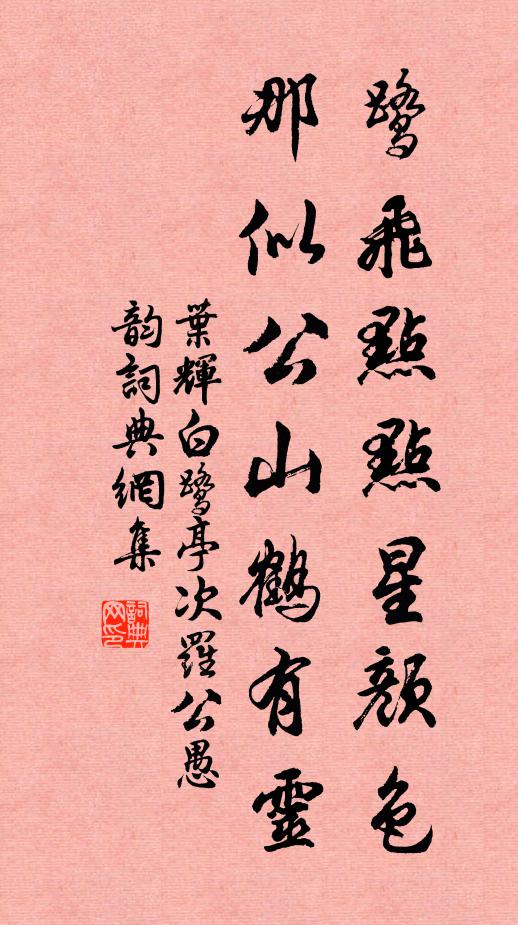 鹭飛點點星顔色
那似公山鶴有靈
葉輝白鹭亭次羅公愚
韵詞典網集
詞典網印